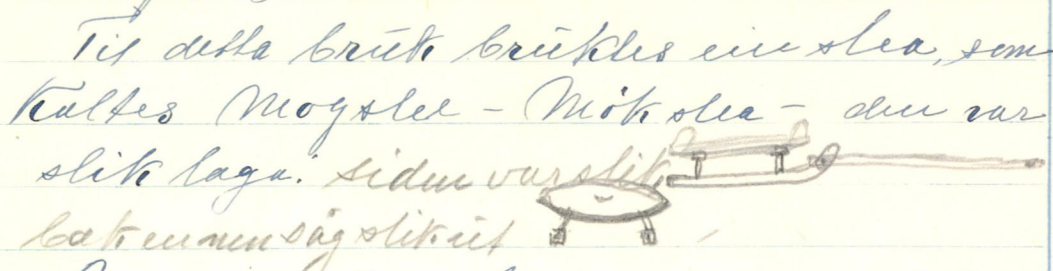 Til detta bruk bruktes ein slea, som
kaltes Mogslee - Mökslea - den var
slik laga. siden var slik
bakennen såg slik ut